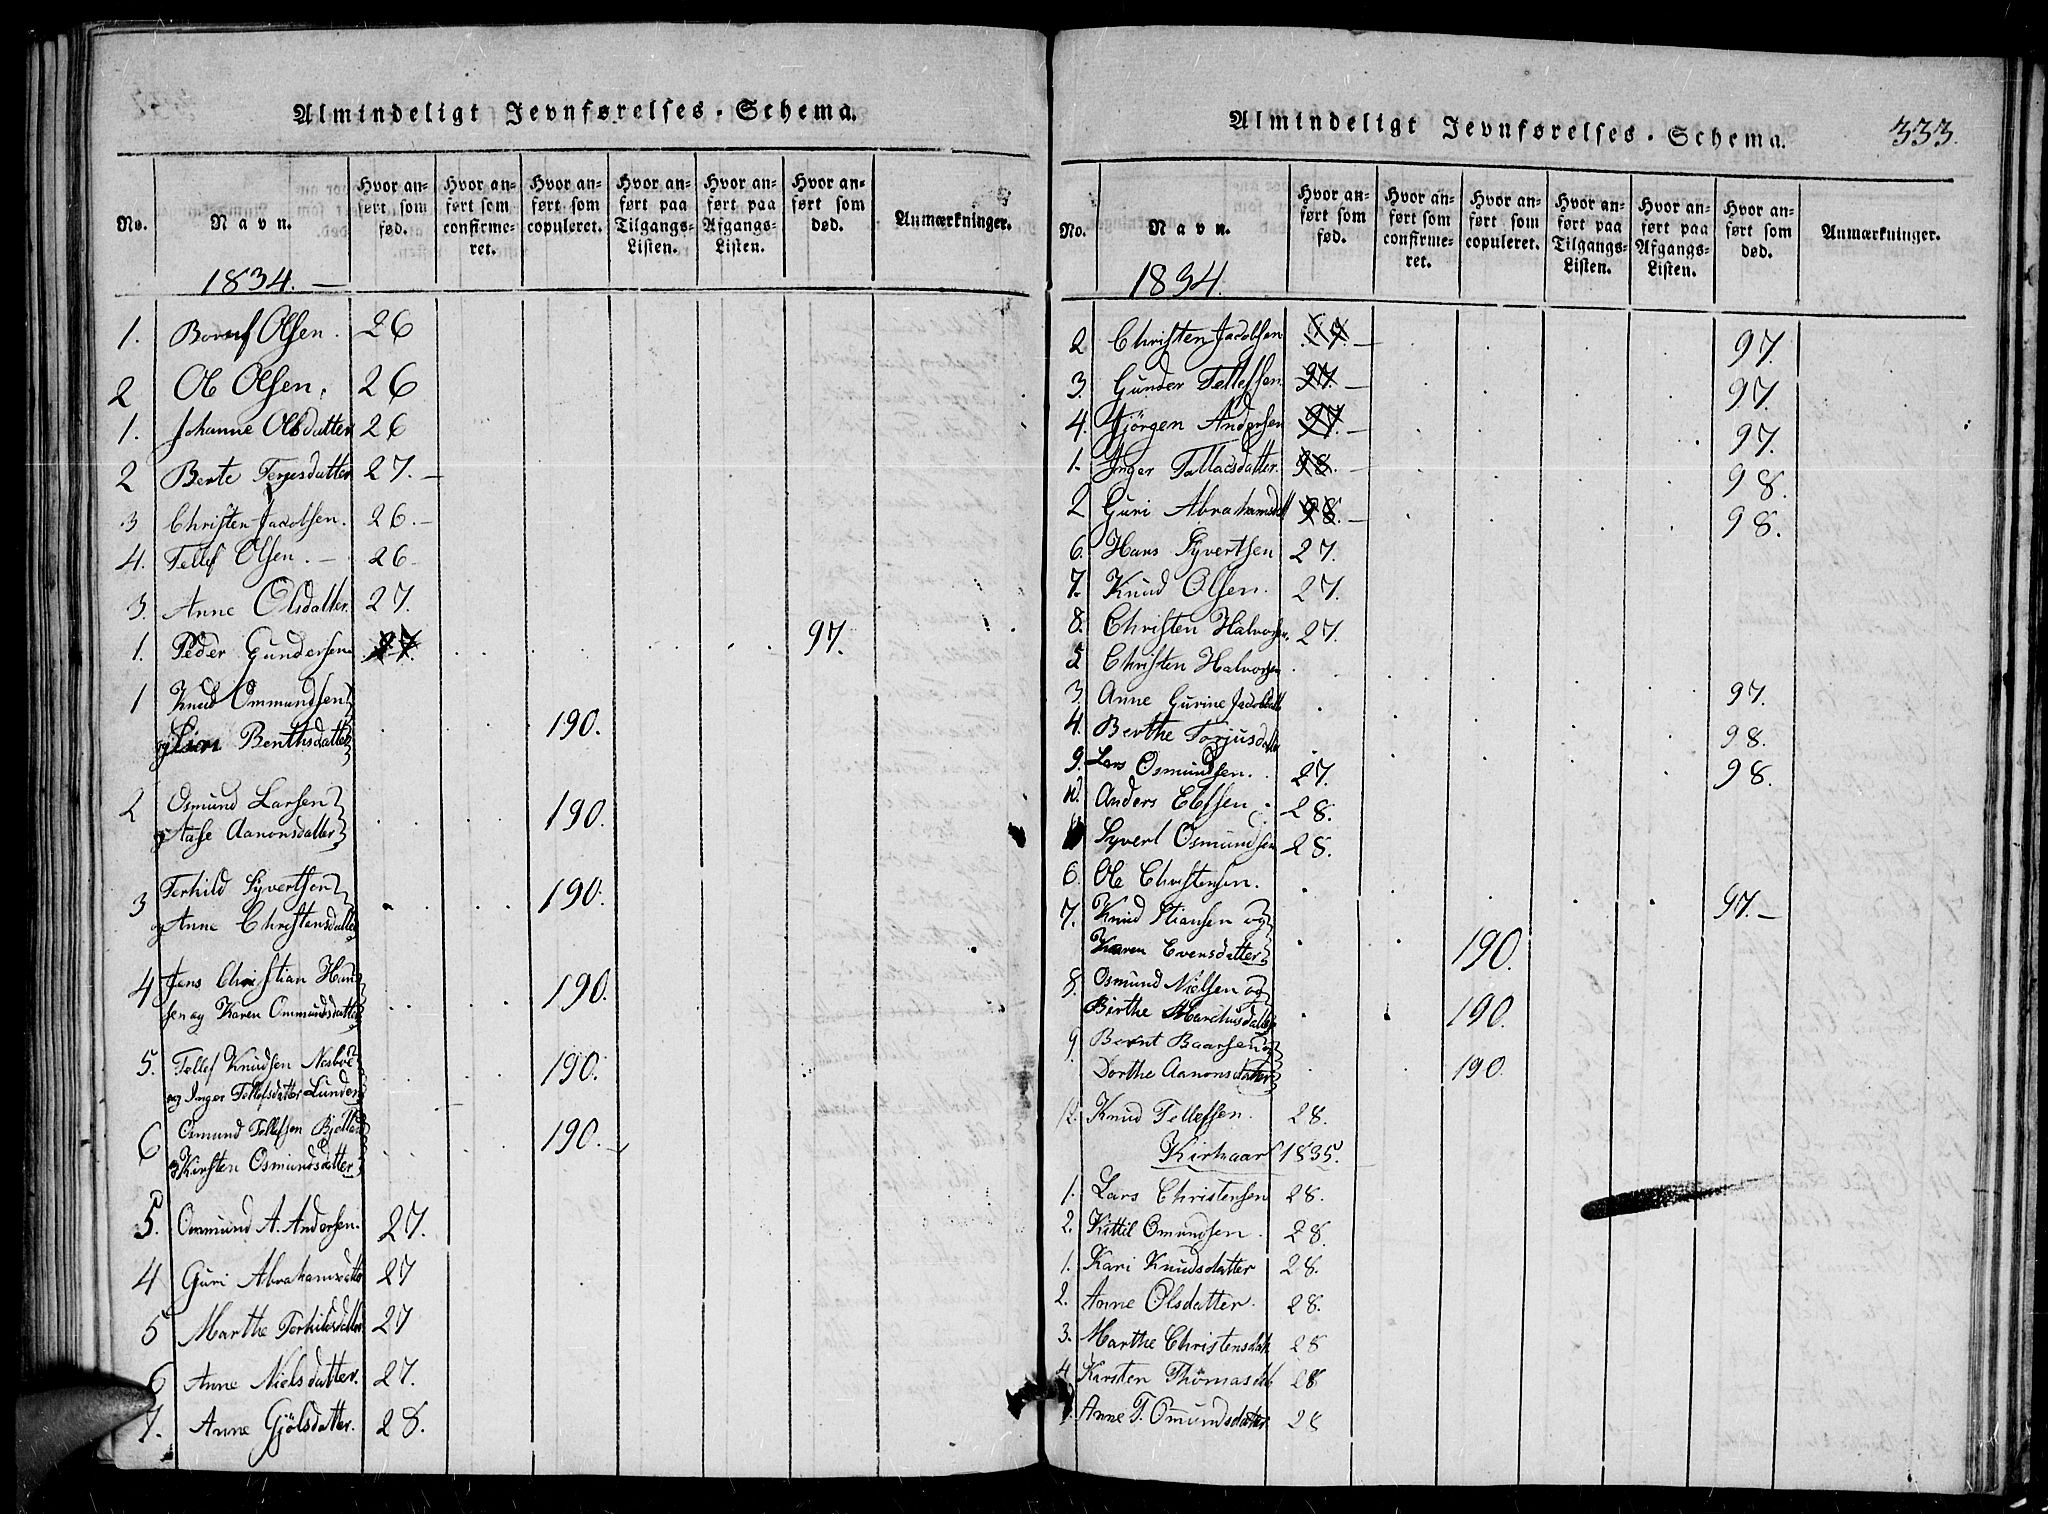 Almindeligt Jevnførelses-Schema.
No.
Navn.
Hvor an-
ført som
fød.
Hvor an-
ført som
confirme-
ret.
Hvor an-
ført som
copuleret.
Hvor an-
ført paa
Tilgangs-
Listen.
Hvor an-
ført paa
Afgangs-
Listen.
Hvor an-
ført som
død.
Anmærkninger.
1834.
1. Olsen. 26
2 Ole Olsen. 26
1. Johanne Olsdatter 26
2 Berte Terjesdatter 27.
3 Christen Jacobsen. 26.
4. Tellef Olsen. 26
3. Anne Olsdatter. 27.
1. Peder Gundersen 97.
1 Knud Ommundsen
og Siri Benthsdatter 190.
2 Osmund Larsen
og Aase Aanonsdatter 190.
3 Terkild Syvertsen
og Anne Christensdatter 190.
4 Jens Christian Han-
sen og Karen Ommundsdatter 190.
5. Tellef Knudsen
og Inger Tellefsdatter Lunden 190.
6 Osmund Tellefsen
og Kirsten Osmundsdatter 190.
5. Ommund A. Andersen. 27.
4 Guri Abrahamsdatter 27
5 Marthe Terkildsdatter 27
6 Anne Nielsdatter. 27.
7. Anne Gjölsdatter. 28.
Almindeligt Jevnførelses-Schema.
333.
No.
Navn.
Hvor an-
ført som
fød.
Hvor an-
ført som
confirme-
ret.
Hvor an-
ført som
copuleret.
Hvor an-
ført paa
Tilgangs-
Listen.
Hvor an-
ført paa
Afgangs-
Listen.
Hvor an-
ført som
død.
Anmærkninger.
1834.
2 Christen Jacobsen 97. 97.
3. Gunder Tellefsen 97. 97.
4. Jörgen Andersen 97. 97.
1. Inger Tallacsdatter. 98. 98.
2 Guri Abrahamsdatt 98. 98.
6. Hans Syvertsen 27.
7. Knud Olsen. 27.
8. Christen Halvorsen. 27.
5 Christen Halvorsen 97.
3. Anne Gurine Jacobsdatt 98.
4. Berthe Torjusdatter 98.
9. Lars Osmundsen. 27.
10. Anders Ellefsen 28.
Syvert Osmundsen 28.
6. Ole Christensen. 97.
7. Knud Stiansen og
Karen Evensdatter 190.
8. Osmund Nielsen og
Birthe Marchusdatter 190.
9 Bernt Baarsen og
Dorthe Aanonsdatter 190.
12. Knud Tellefsen. 28.
Kirkeaar 1835.
1. Lars Christensen 28.
2. Kittil Omundsen. 28.
1. Kari Knudsdatter 28.
2. Anne Olsdatter. 28.
3. Marthe Christensdatt 28
4. Kirsten Thomasdat 28
Anne T. Omundsdatter 28